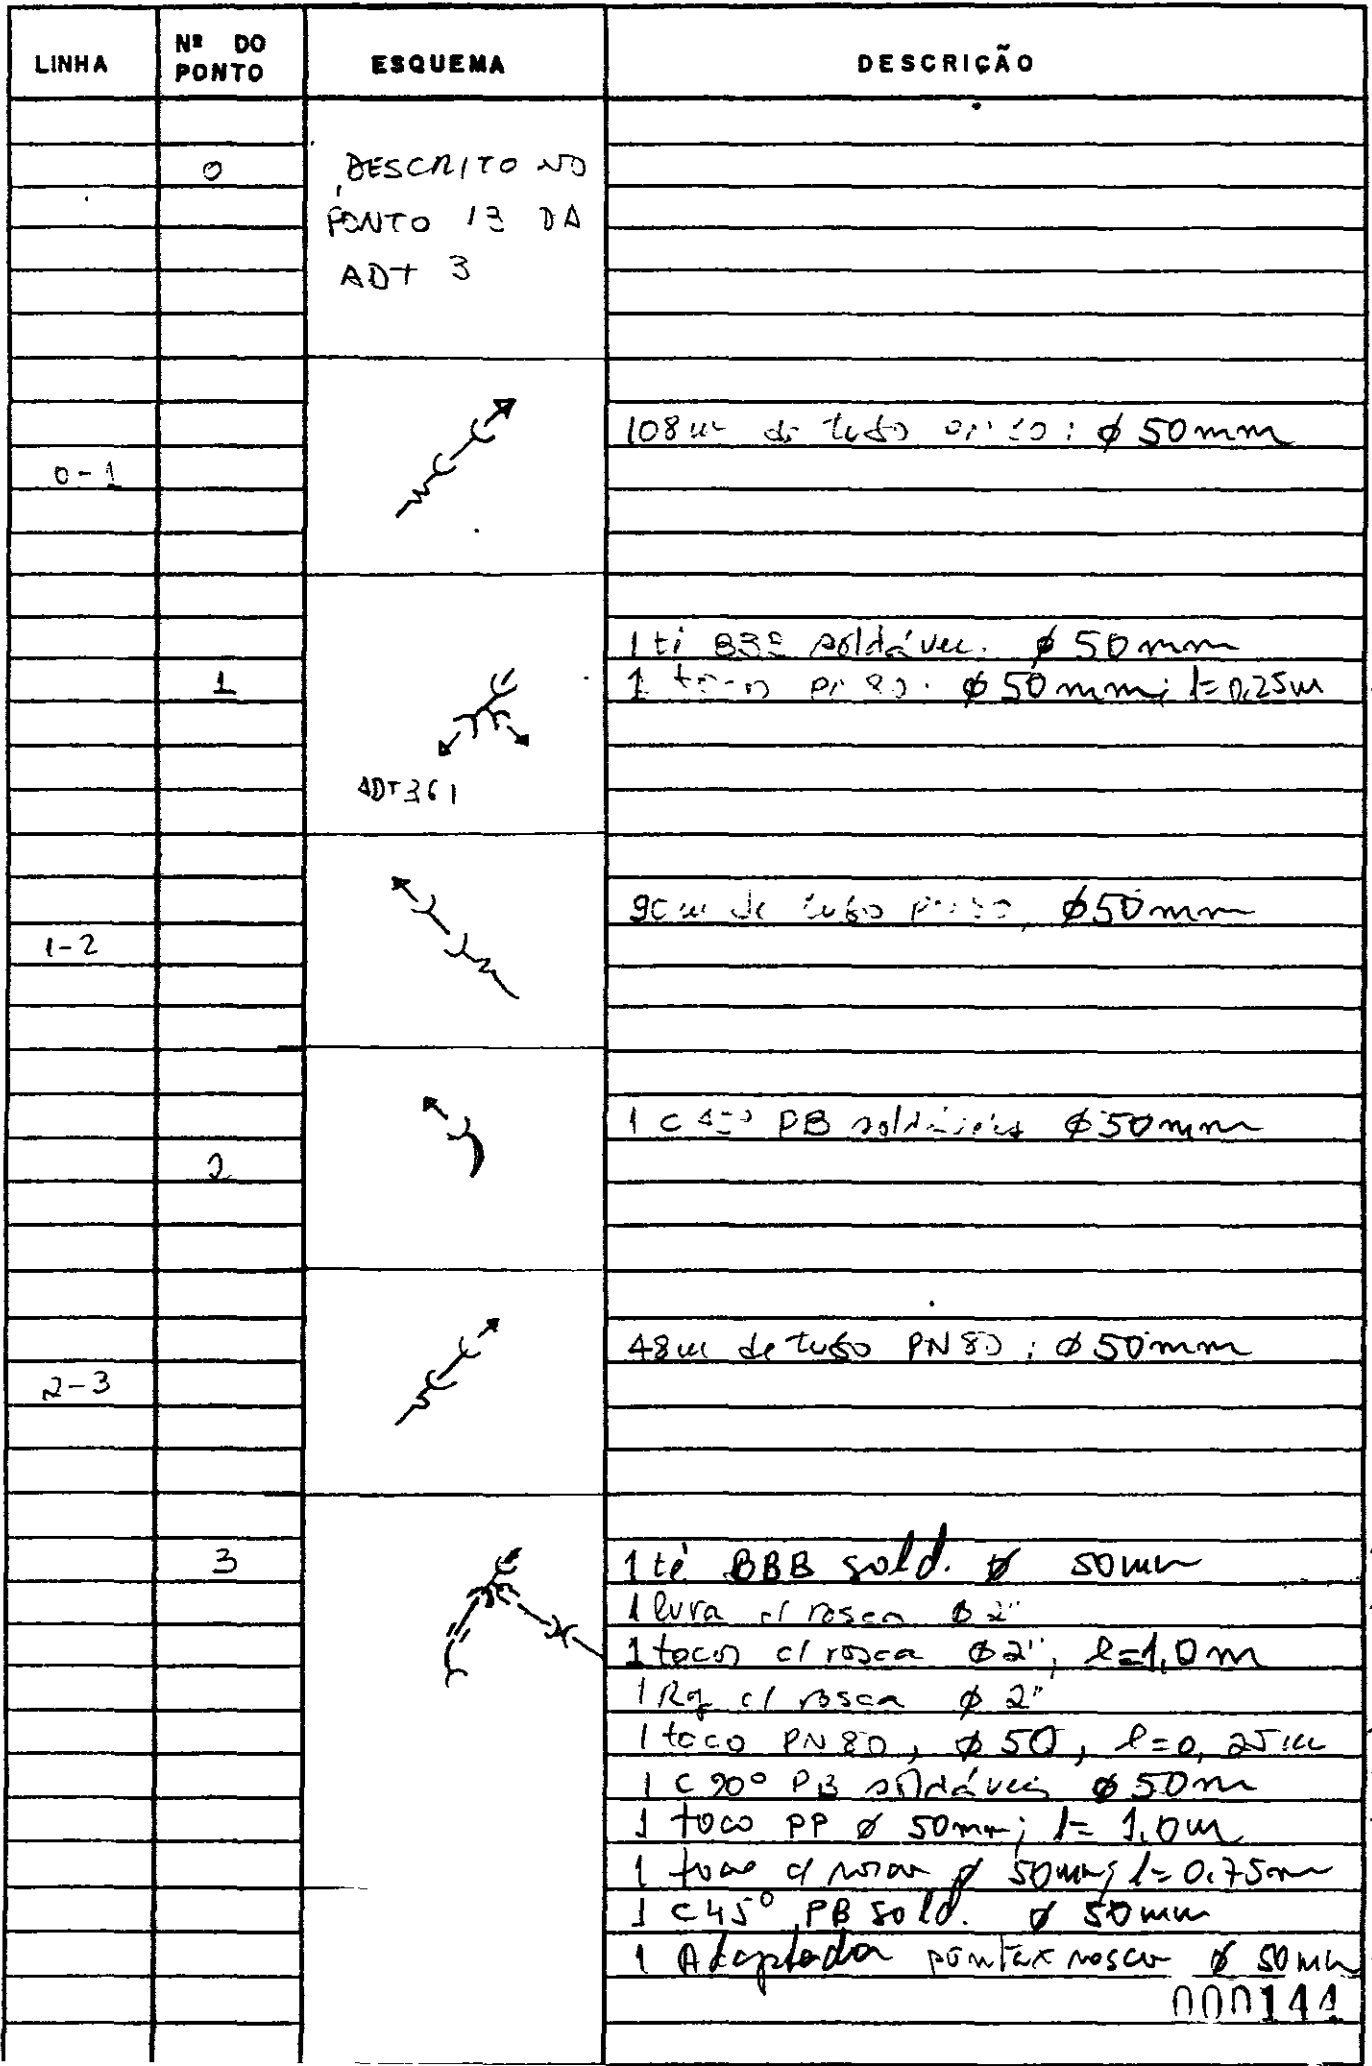 LINHA
Nº DO PONTO
ESQUEMA
DESCRIÇÃO
0
DESCRITO NO
PONTO 13 DA
ADT 3
0-1
108m de tubo : φ 50mm
1
ADT 361
1 té soldável. φ 50mm
1 toco φ 50mm; l=0,25m
1-2
90m de tubo φ50mm
2
1 C PB soldável φ50mm
2-3
48m de tubo PN 80 ; φ50mm
3
1 té BBB sold. φ 50mm
1 luva c/ rosca φ 2"
1 toco c/ rosca φ2", l=1,0m
1 Rg c/ rosca φ 2"
1 toco PN 80, φ 50, l=0,25m
1 C 90º PB soldável φ50m
1 toco PP φ 50mm; l= 1.0m
1 toco c/ rosca φ 50mm; l= 0.75m
1 C45º PB sold. φ 50mm
1 Adaptador rosca φ 50mm
000144